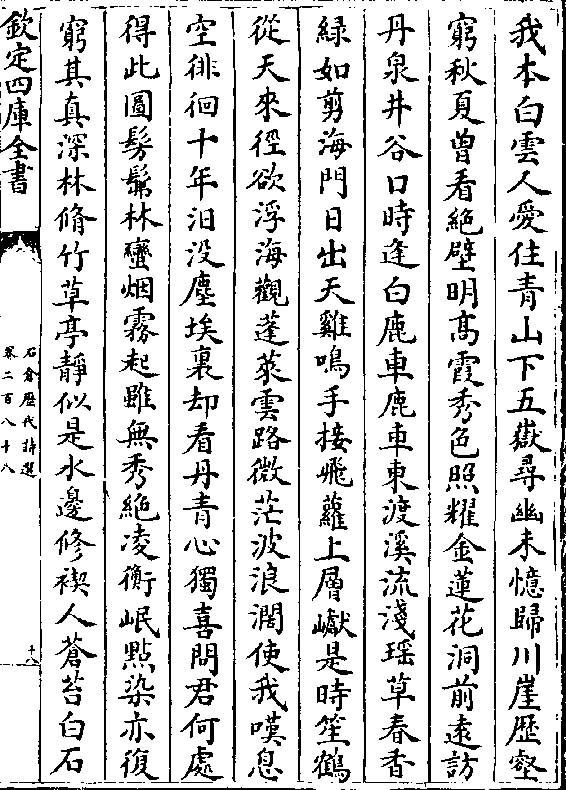 我本白雲人愛住青山下五嶽尋幽未憶歸川崖歴壑
窮秋夏曾看絶壁明髙霞秀色照耀金蓮花洞前逺訪
丹泉井谷口時逢白鹿車鹿車東渡溪流淺瑶草春香
緑如剪海門日出天雞鳴手接飛蘿上層巘是時笙鶴
從天來徑欲浮海觀蓬萊雲路微茫波浪濶使我嘆息
空徘徊十年汨没塵埃裏却看丹青心獨喜問君何處
得此圖髣髴林巒烟霧起雖無秀絶凌衡岷點染亦復
窮其真深林脩竹草亭靜似是水邊修禊人蒼苔白石
欽定四庫全書
石倉歴代詩選
卷二百八十八
十八